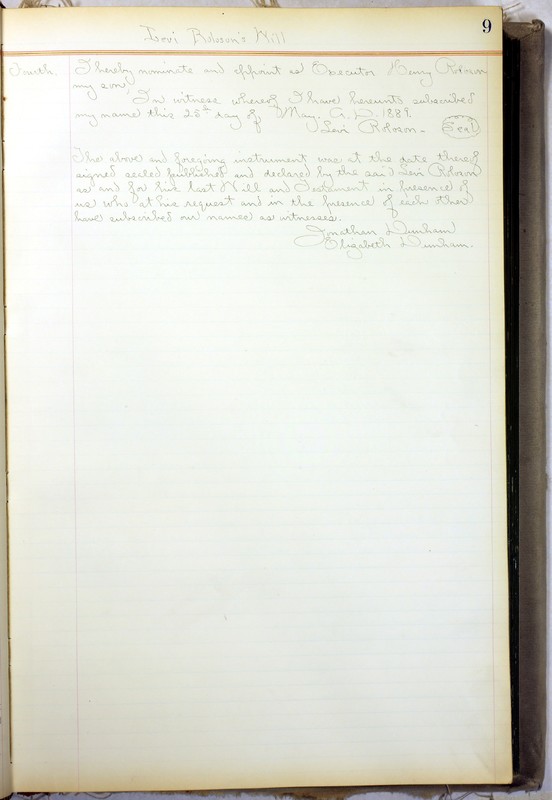 9
Levi Robson's Will
Fourth. I hereby nominate and appoint as Executor Henry Robson
my son,
In witness whereof I have hereunto subscribed
my name this 25th day of May. A.D. 1889.
Levi Robson - Seal
The above and foregoing instrument was at the date thereof
signed sealed published and declared by the said Levi Robson
as and for his last Will and Testament in presence of
us who at his request and in the presence of each other
have subscribed our names as witnesses.
Jonathan Dunham
Elizabeth Dunham.